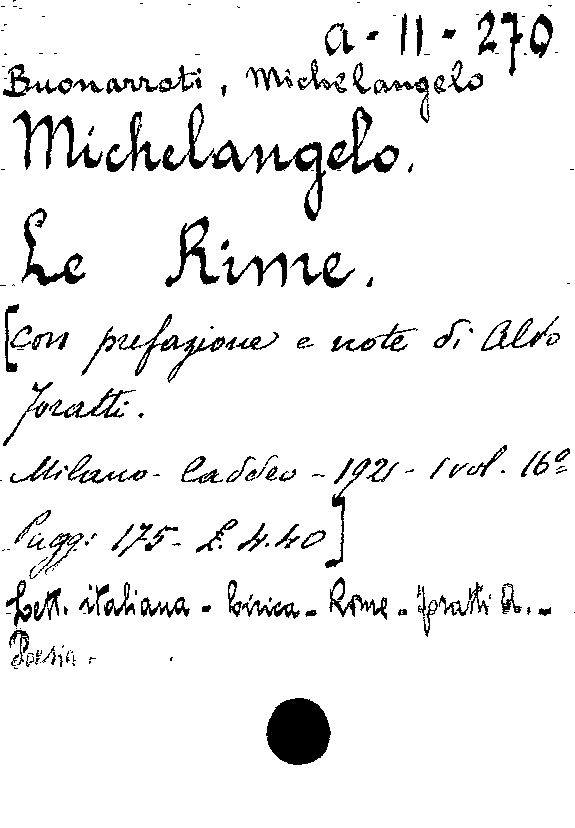 a-11-270
Buonarroti, Michelangelo
Michelangelo.
Le Rime.
[Con prefazione e note di Aldo
Foratti.
Milano - Caddeo - 1921 - 1 vol. 16º
Pagg: 175 - L. 4.40]
Lett. italiana - Lirica - Rime - Foratti A. -
Poesia.